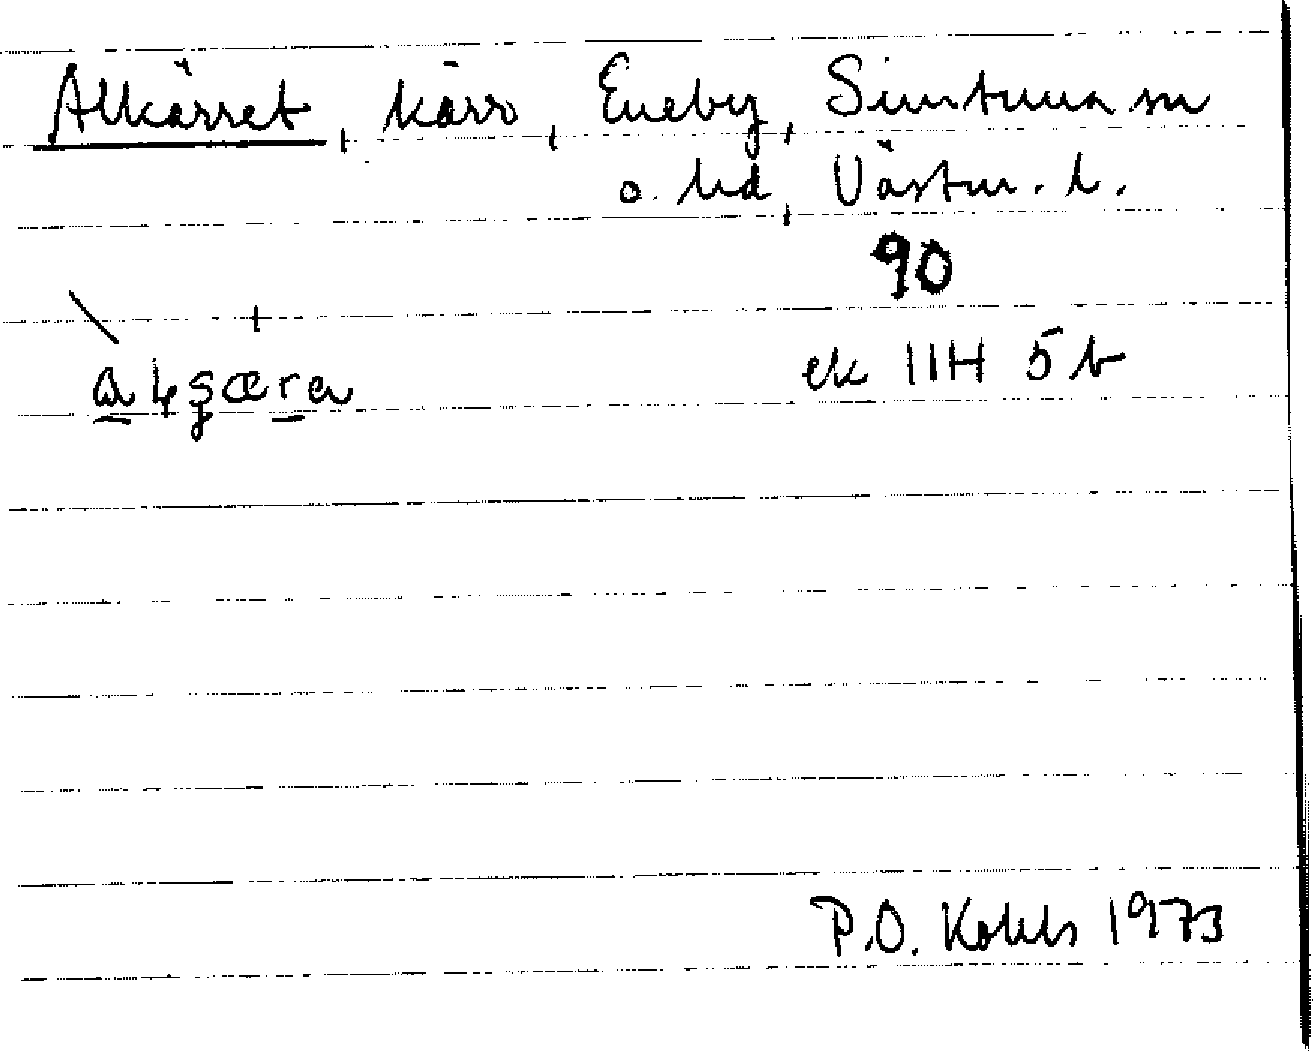 Alkärret, kärr, Eneby, Simtuna sn
o. hd, Västm. l.
90
ek 11H 5 b
P.O. Kohls 1973